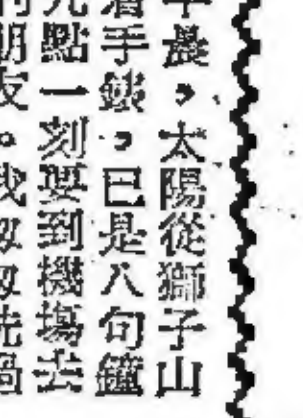 晨，太陽從獅子山
看手錶，已是八句鐘
九點一刻要到機塲去
的朋友。我匆匆洗過